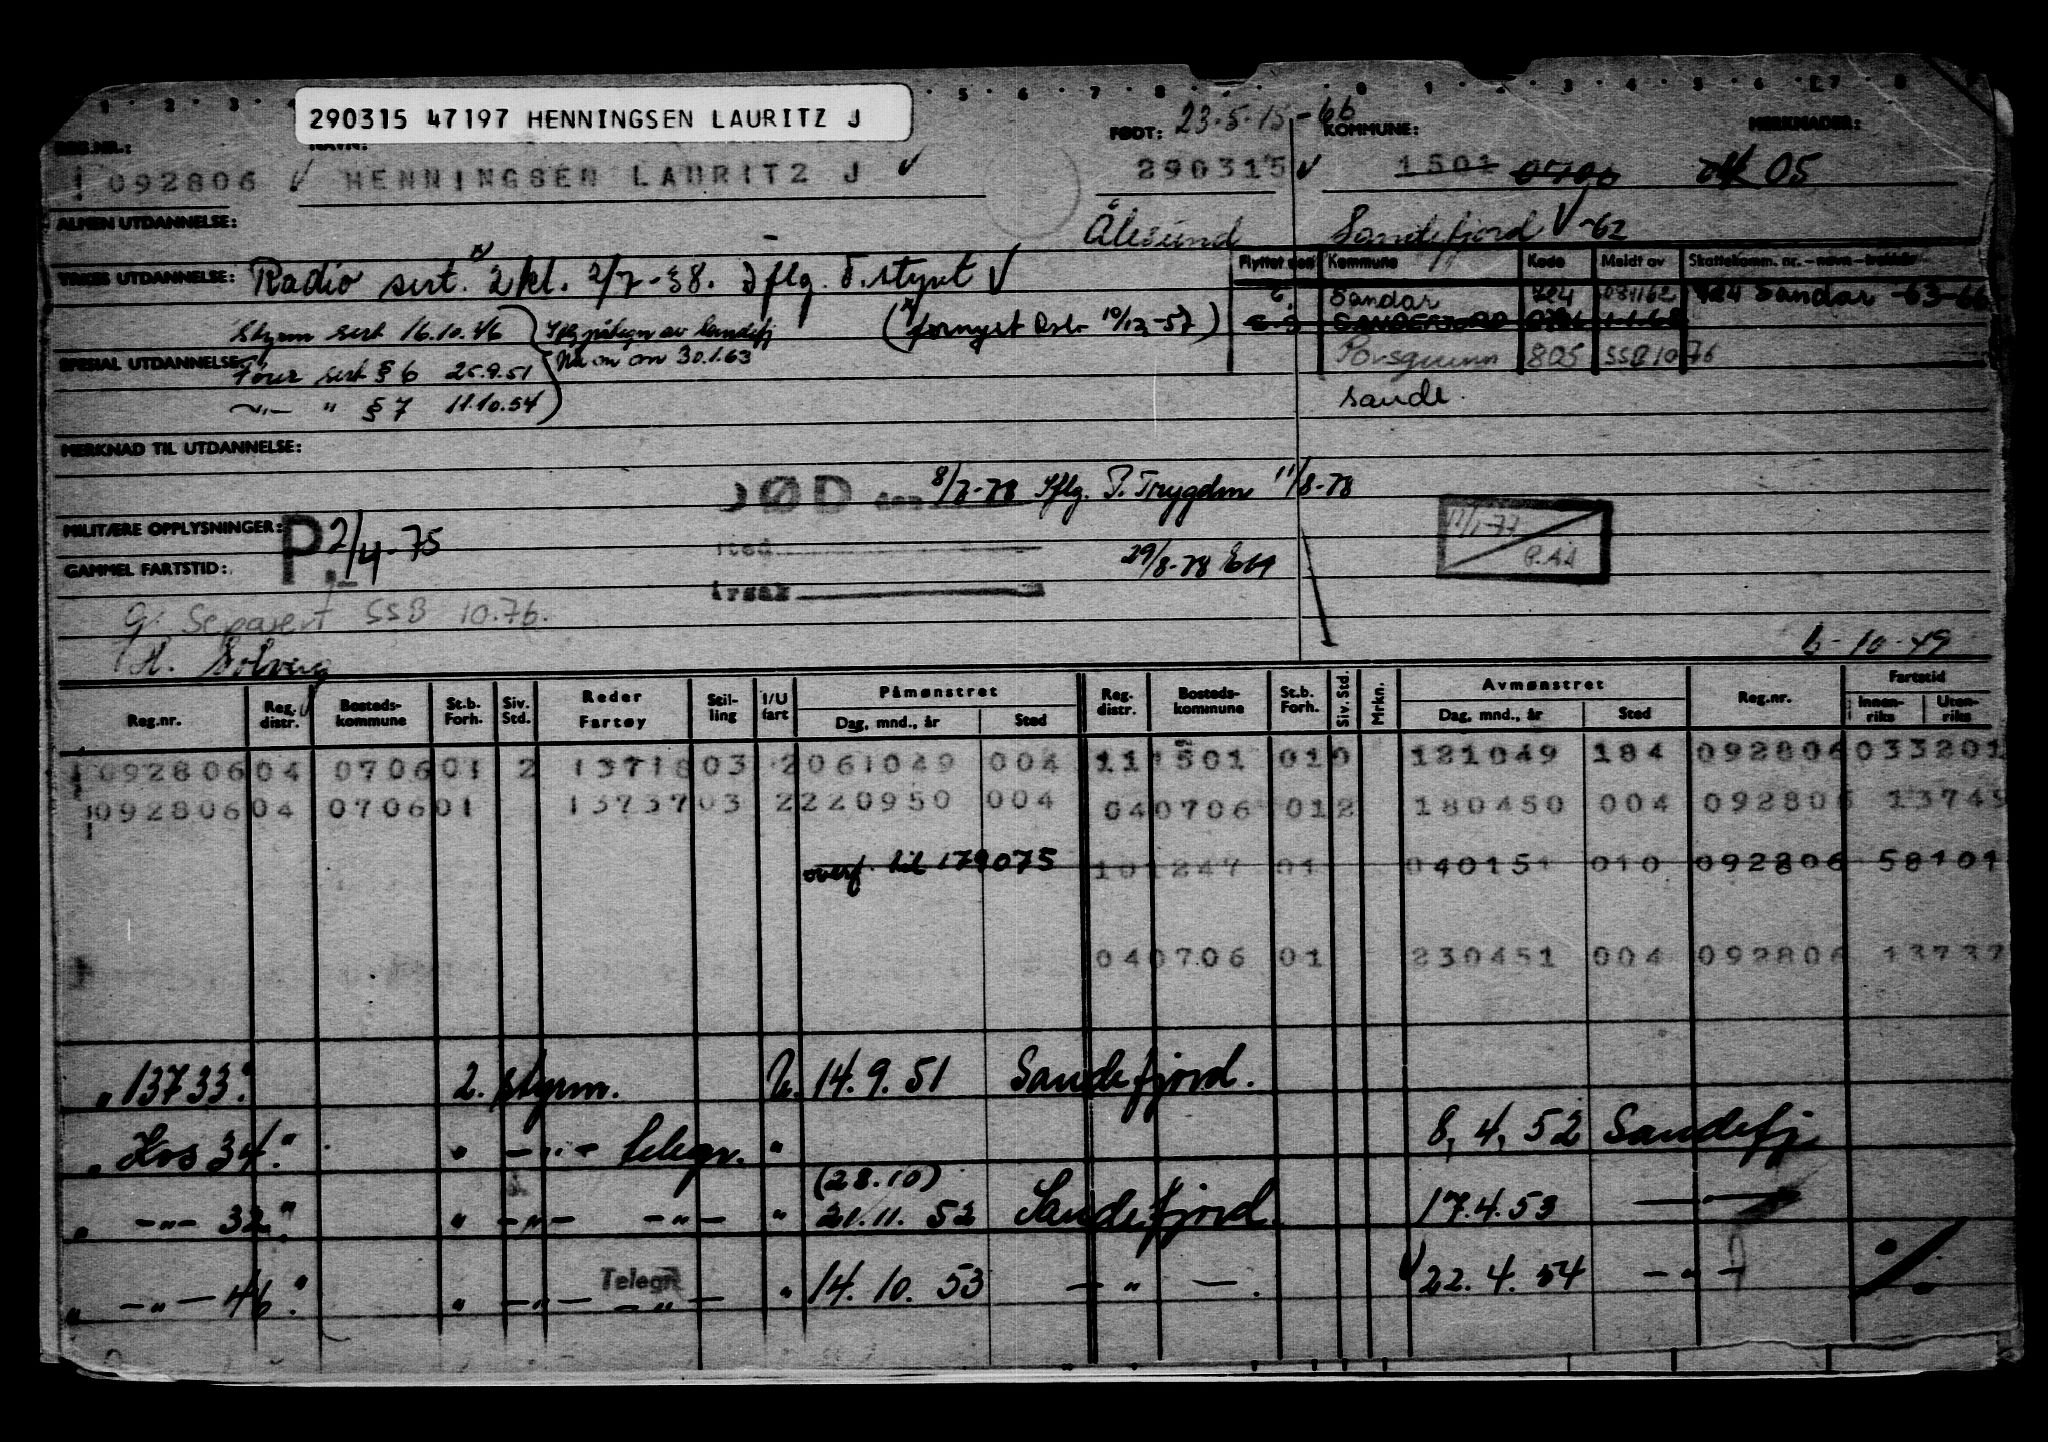 290315 47197 HENNINGSEN LAURITZ J
REG.NR.: NAVN: FØDT: 23.5.15-66 KOMMUNE: MERKNADER:
092806 HENNINGSEN LAURITZ J 290315 1501 0706 05
ALMEN UTDANNELSE: Ålesund Sandefjord -62
YRKES UTDANNELSE: Radio sert. 2 kl. 2/7-38. Iflg. S. styret
Flyttet Kommune Kode Meldt av Skattekomm. nr. - navn -
Sandar 724 081162 724 Sandar -63-66
Styrm sert 16.10.46 Iflg påtegn av Sandefj (fornyet Oslo 10/12-57) SANDEFJORD 0706 1.1.68
SPESIAL UTDANNELSE: Fører sert § 6 25.9.51 30.1.63 Porsgrunn 805 SSB 10 76
-"- " § 7 11.10.54 Sande.
MERKNAD TIL UTDANNELSE:
DØD den 8/7-78 Iflg. P. Trygden 11/8-78
MILITÆRE OPPLYSNINGER: P. 2/4-75 11/1-77
sted 29/8-78
GAMMEL FARTSTID:
årsak
G: Separert SSB 10.76.
H. Solveig 6-10-49
Reg.nr. Reg. distr. Bosteds-kommune St.b. Forh. Siv. Std. Reder Fartøy Stil-ling I/U fart Påmønstret Dag, mnd., år Sted Reg-distr. Bosteds-kommune St.b. Forh. Siv. Std. Mrkn. Avmønstret Dag, mnd., år Sted Reg.nr. Fartstid Innen-riks Uten-riks
092806 04 0706 01 2 13718 03 2 061049 004 11 1501 01 0 121049 184 092806 033201
092806 04 0706 01 13737 03 2 220950 004 04 0706 01 2 180450 004 092806 13749
overf. til 179075 10 1247 01 040151 010 092806 58101
04 0706 01 230451 004 092806 13737
"13733." 2. styrm. U. 14.9.51 Sandefjord.
"Hvs 34." " -"- telegr. " 8,4,52 Sandefj.
(28.10)
" -"- 32." " -"- -"- " 21.11.52 Sandefjord 17.4.53
" -"- 46." " -"- Telegr. -"- " 14.10.53 -"- . 22.4.54 -"-